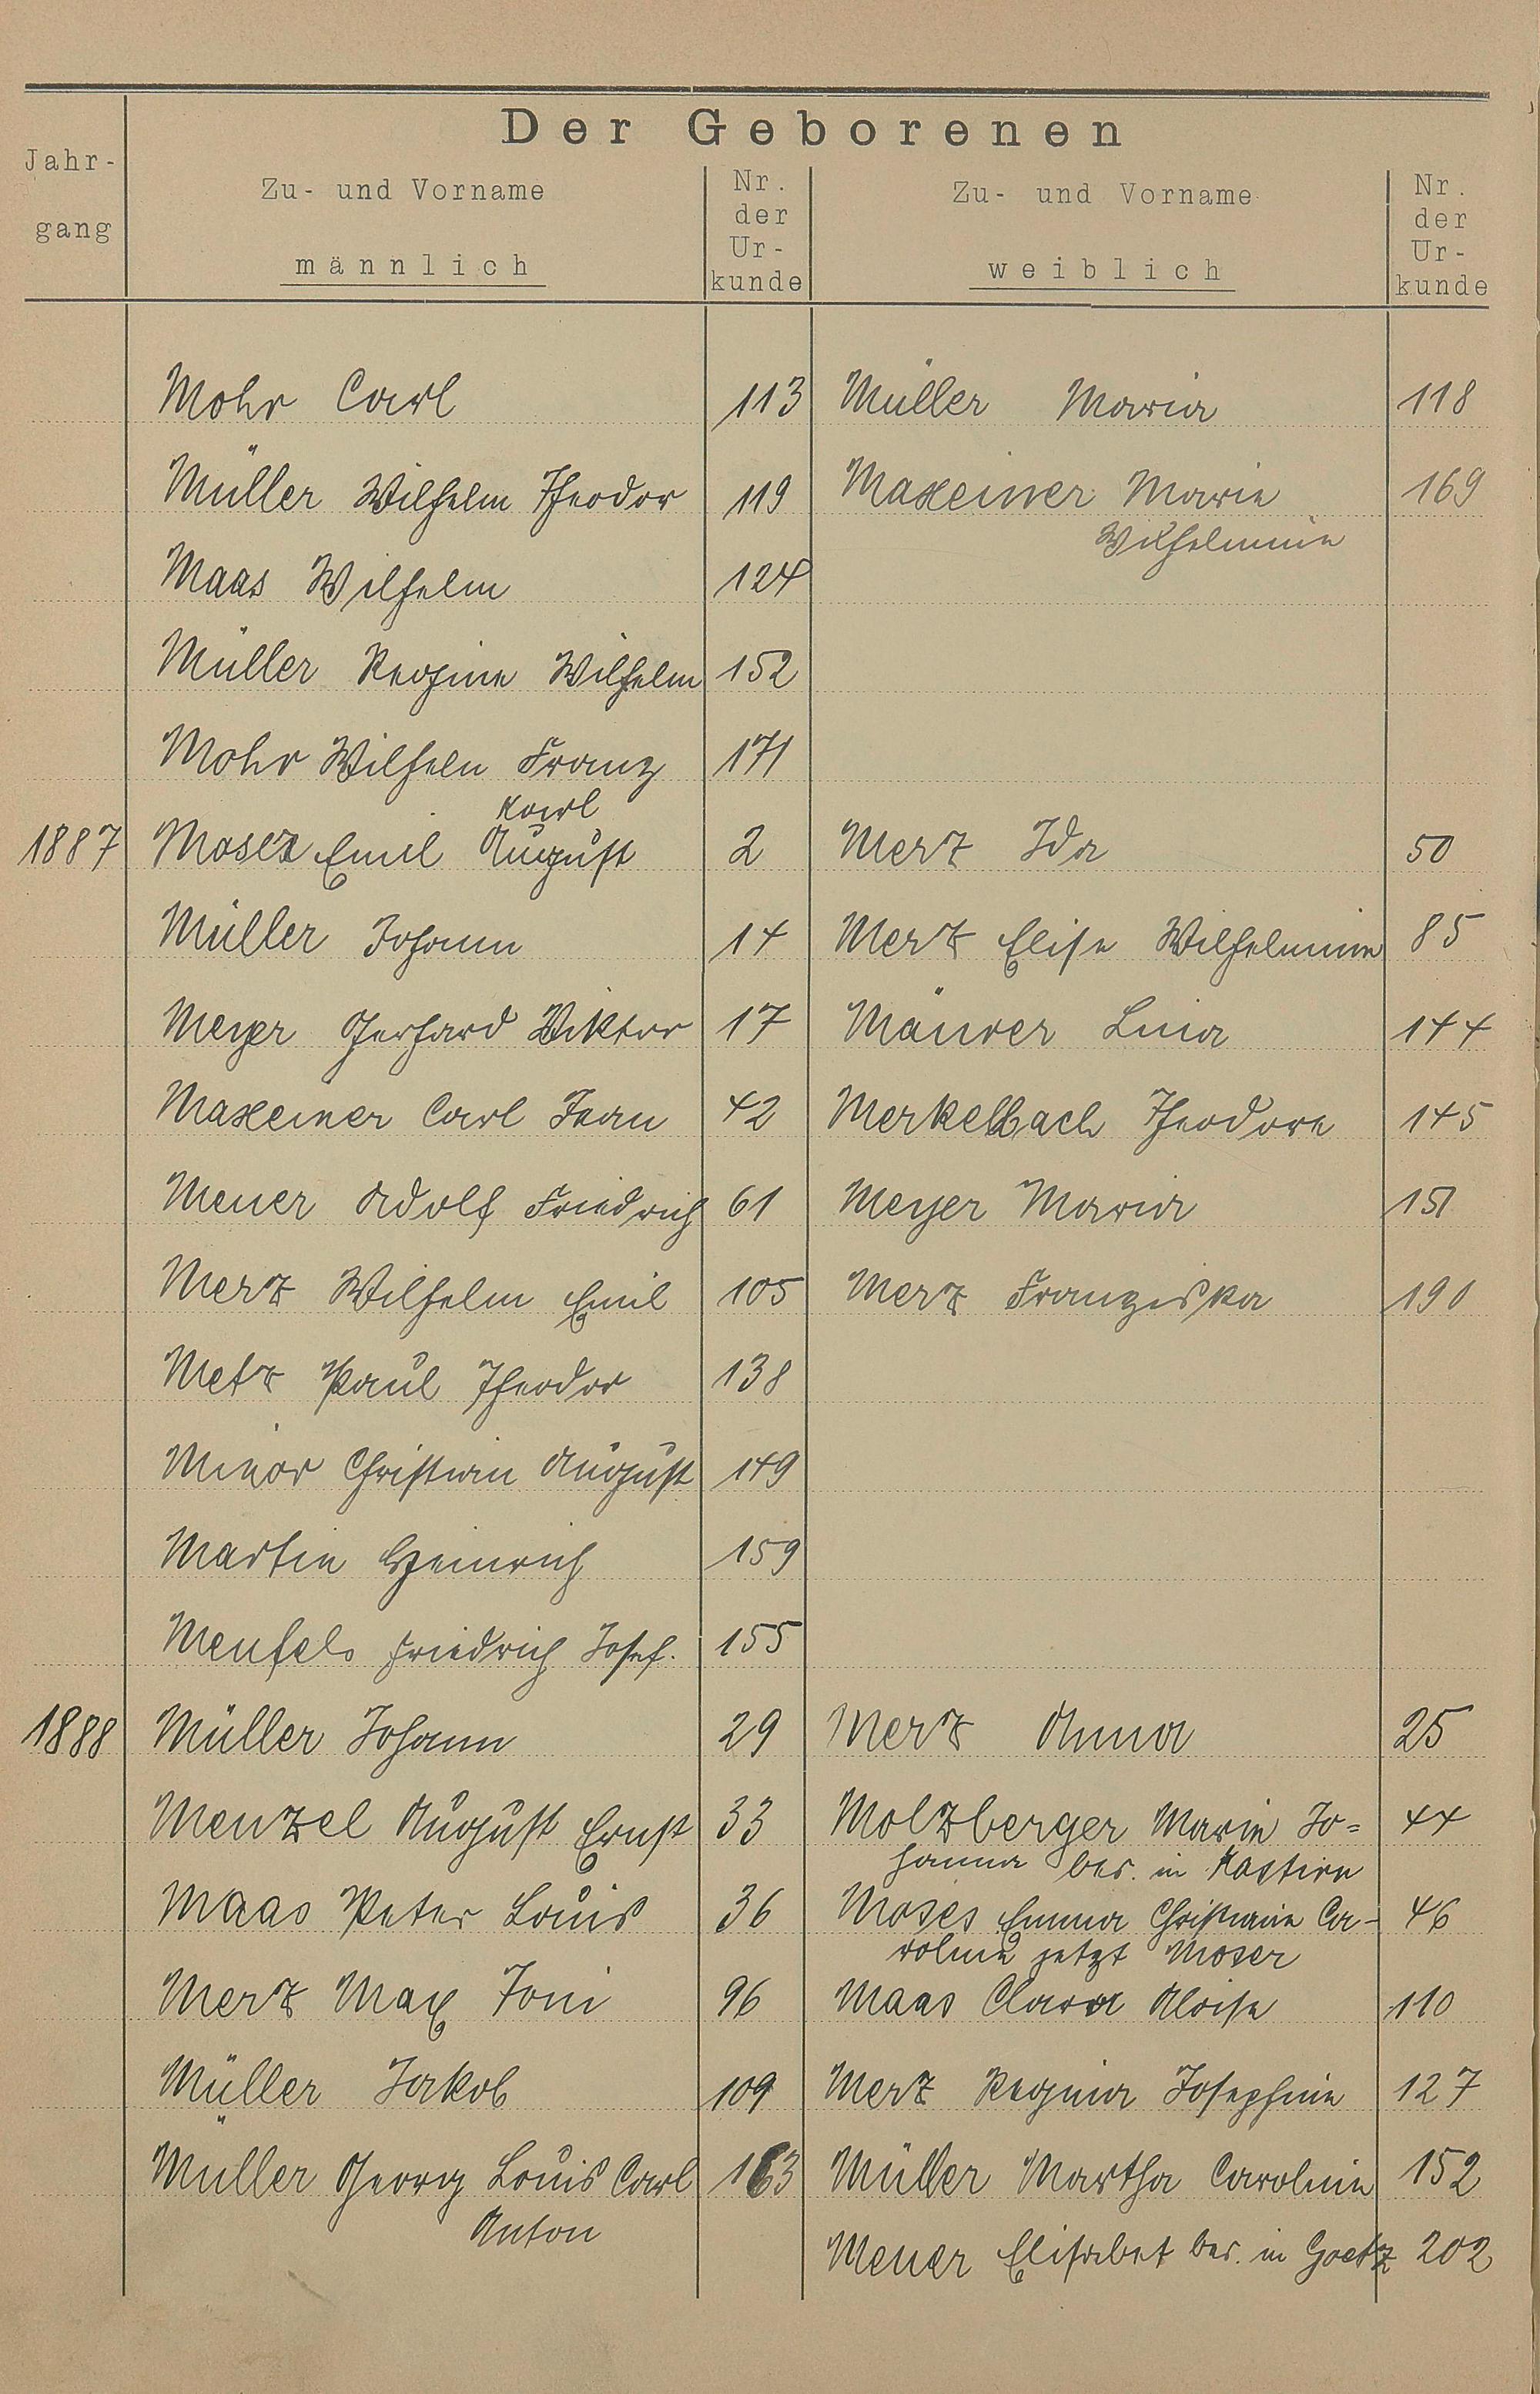 Der Geborenen
Jahr-
gang
Zu- und Vorname
männlich
Nr.
der
Ur-
kunde
Zu- und Vorname
weiblich
Nr.
der
Ur-
kunde
Mohr Carl 113 Müller Maria 118
Müller Wilhelm Theodor 119 Maxeiner Marie 169
Wilhelmine
Maas Wilhelm 124
Müller Regine Wilhelm 152
Mohr Wilhelm Franz 171
Karl
1887 Moses Emil August 2 Merz Ida 50
Müller Johann 14 Merz Elise Wilhelmine 85
Meyer Gerhard Viktor 17 Mäurer Lina 144
Maxeiner Carl Jean 42 Merkelbach Theodore 145
Meuer Adolf Friedrich 61 Meyer Maria 151
Merz Wilhelm Emil 105 Merz Franziska 190
Metz Paul Theodor 138
Minor Christian August 149
Martin Heinrich 159
Friedrich Josef. 155
1888 Müller Johann 29 Merz Anna 25
Menzel August Ernst 33 Molzberger Marie Jo= 44
hanna bes. in
Maas Peter Louis 36 Moses Emma Christiane Ca- 46
roline jetzt Moser
Merz Max Toni 96 Maas Clara Aloise 110
Müller Jakob 109 Merz Regina Josephine 127
Müller Georg Louis Carl 163 Müller Martha Caroline 152
Anton
Meuer Elisabet bes. in Goetz 202